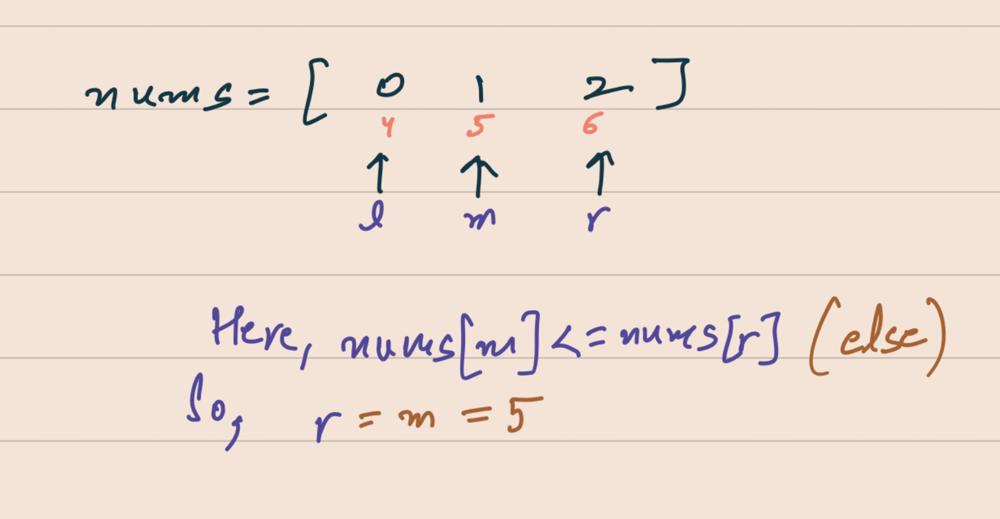 nums = [ 0 1 2 ]
4 5 6
↑ ↑ ↑
l m r
Here, nums[m] <= nums[r] (else)
So, r = m = 5